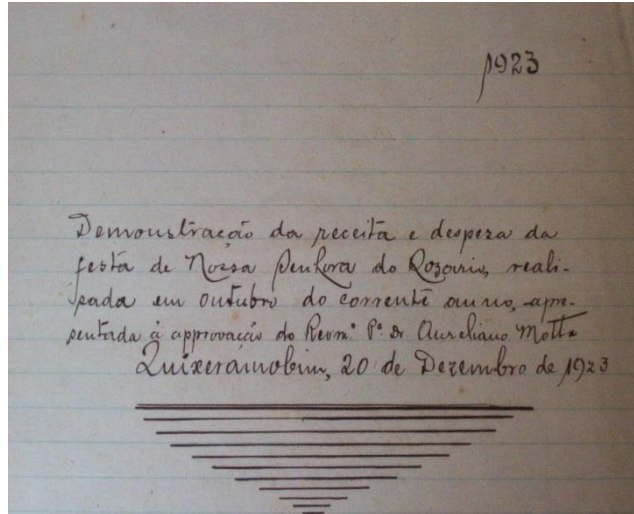 1923
Demonstração da receita e despeza da
festa de Nossa Senhora do Rozario, reali-
sada em outubro do corrente anno, apre-
sentada á approvação do Revmº Pe. Dr. Aureliano Motta
Quixeramobim, 20 de Dezembro de 1923